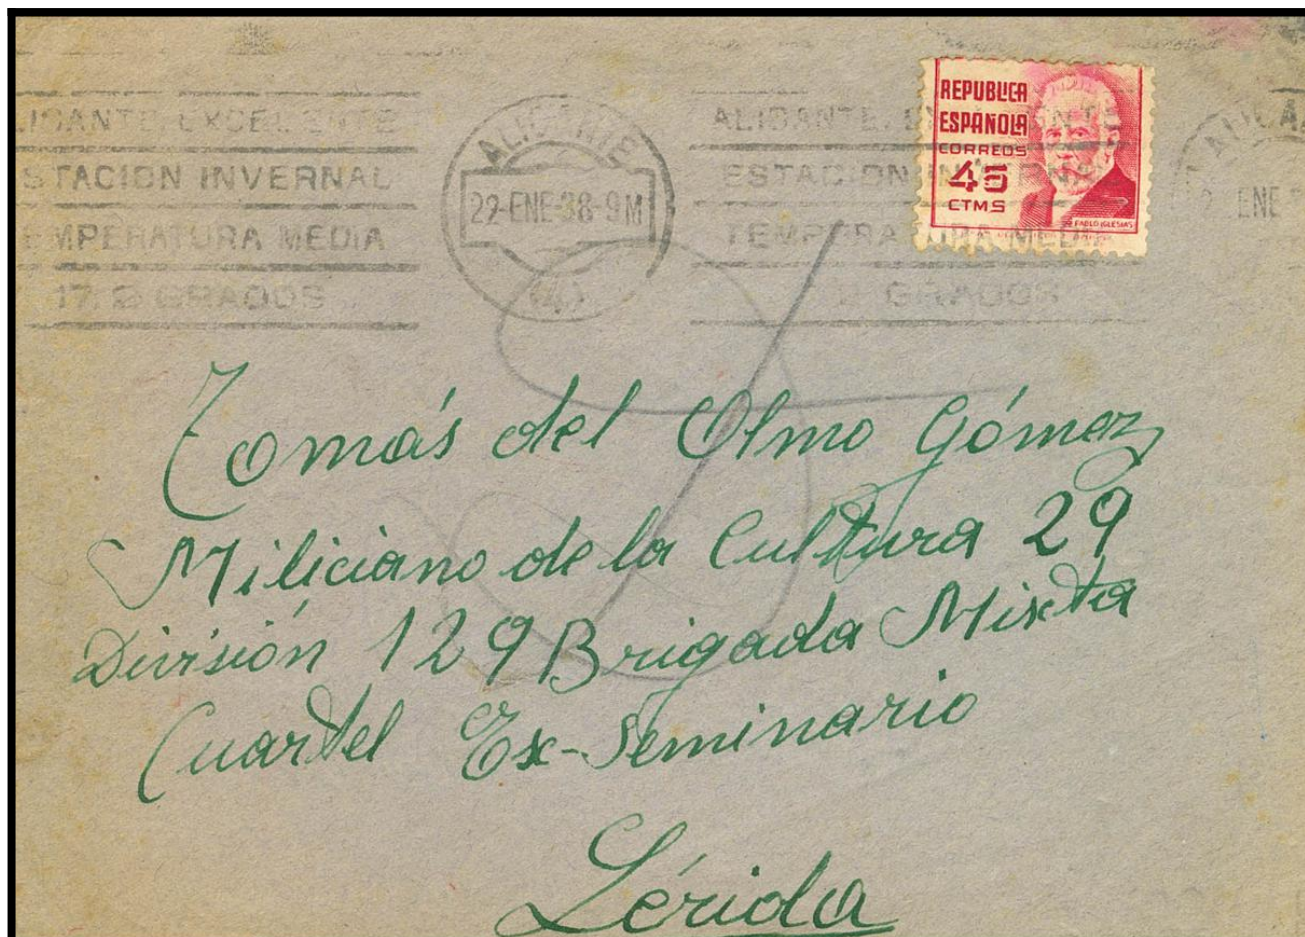 ESTACION INVERNAL
TEMPERATURA MEDIA
17,2 GRADOS
ALICANTE
29-ENE-38-9M
ALICANTE. EXCELENTE
ESTACION INVERNAL
TEMPERATURA MEDIA
GRADOS
REPUBLICA
ESPAÑOLA
CORREOS
45
CTMS
PABLO IGLESIAS
ENE
Tomás del Olmo Gómez
Miliciano de la Cultura 29
División 129 Brigada Mixta
Cuartel Ex-Seminario
Lérida